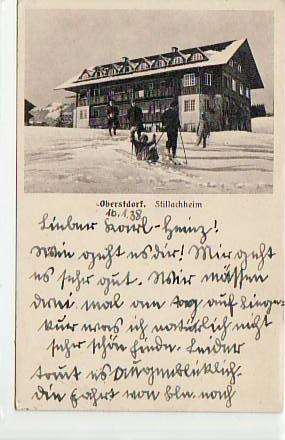 Oberstdorf. Stillachheim
16.1.38
Lieber Karl-Heinz!
Wie geht es dir! Mir geht
es sehr gut. Wir müssen
drei mal am Tag auf Liege-
kur was ich natürlich nicht
sehr schön finde. Leider
taut es augenblicklich.
die Fahrt von bln. nach